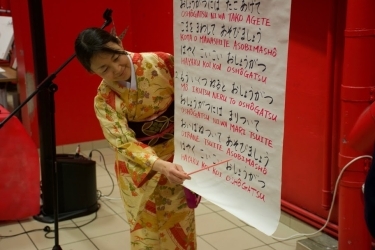 おしょうがつには たこ あげて
OSHŌGATSU NIWA TAKO AGETE
こまを まわして あそびましょう
KOMA O MAWASHITE ASOBIMASHŌ
はやく こいこい おしょうがつ
HAYAKU KOI KOI OSHŌGATSU
もういくつねると おしょうがつ
MŌ IKUTSU NERU TO OSHŌGATSU
おしょうがつには まりついて
OSHŌGATSU NIWA MARI TSUITE
おいばねついて あそびましょう
OIBANE TSUITE ASOBIMASHŌ
はやく こいこい おしょうがつ
HAYAKU KOI KOI OSHŌGATSU